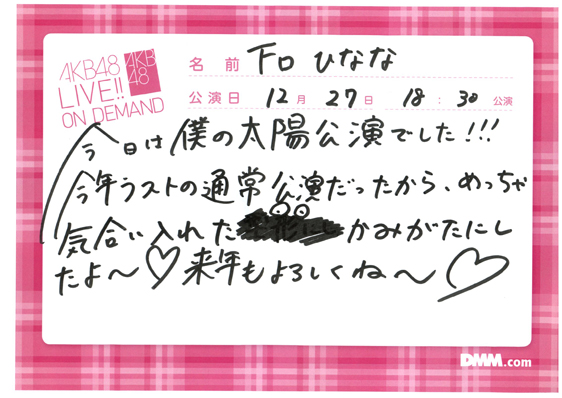 AKB48
LIVE!!
ON DEMAND
AKB
48
名前 下口ひなな
公演日 12月27日 18:30公演
今日は僕の太陽公演でした!!!
今年ラストの通常公演だったから、めっちゃ
気合い入れた かみがたにし
たよ〜♡来年もよろしくね〜♡
DMM.com